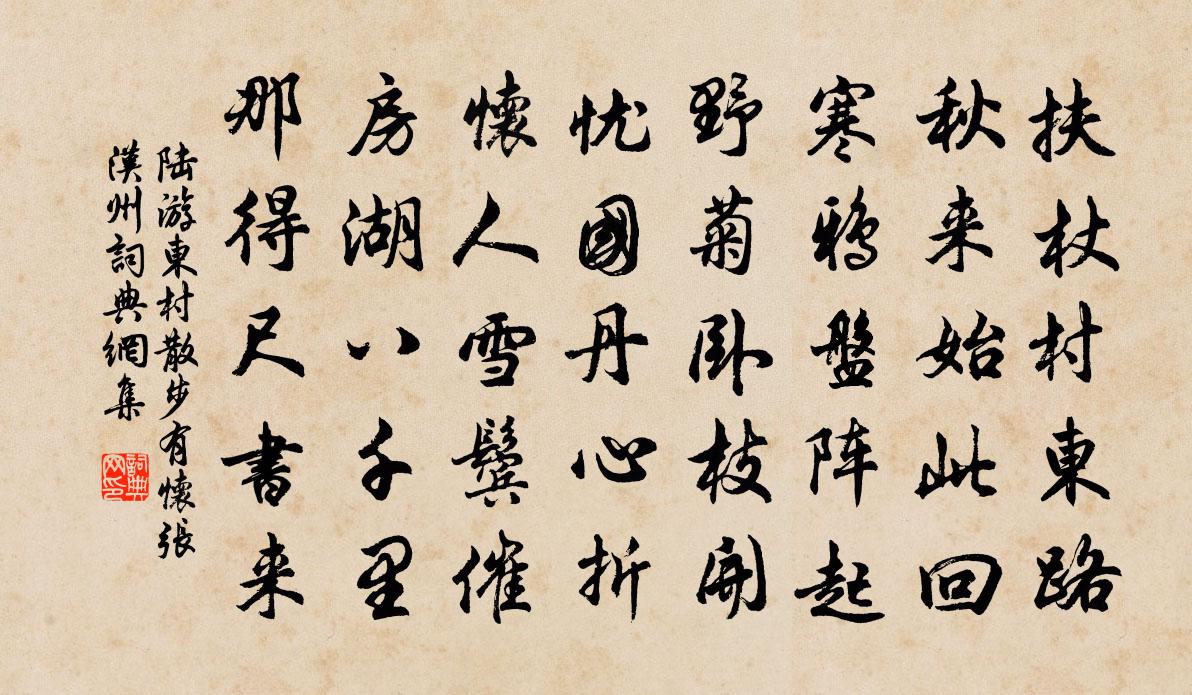 扶杖村東路
秋来始此回
寒鸦盤阵起
野菊卧枝開
忧國丹心折
懷人雪鬓催
房湖八千里
那得尺書来
陆游東村散步有懷張
漢州詞典網集
詞典网印